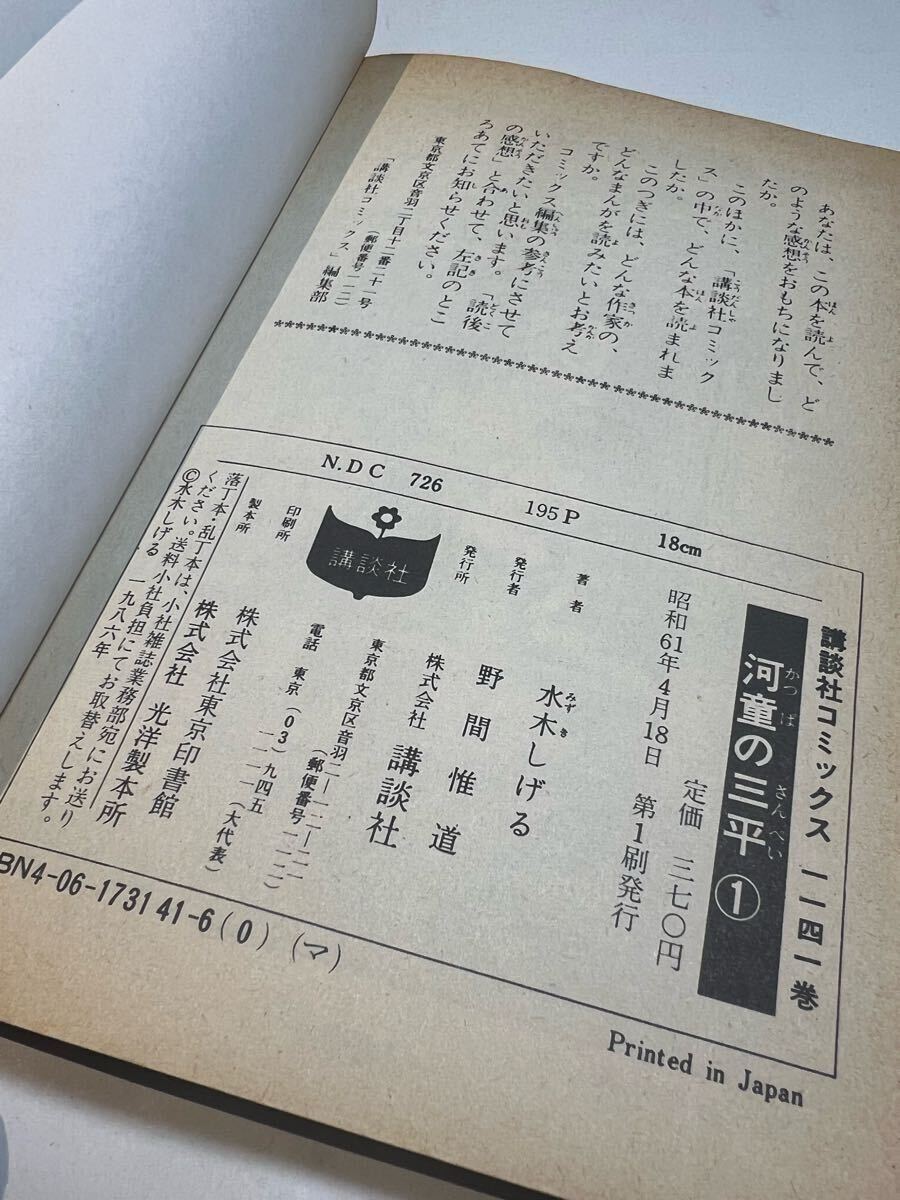 あなたは、この本を読んで、ど
のような感想をおもちになりまし
たか。
このほかに、「講談社コミック
ス」の中で、どんな本を読まれま
したか。
このつぎには、どんな作家の、
どんなまんがを読みたいとお考え
ですか。
コミックス編集の参考にさせて
いただきたいと思います。「読後
の感想」と合わせて、左記のとこ
ろあてにお知らせください。
東京都文京区音羽二丁目十二番二十一号
(郵便番号一一二)
「講談社コミックス」編集部
N.D C 726 195P 18cm
講談社コミックス 一一四一巻
河童の三平 ①
定価 三七〇円
昭和61年4月18日 第1刷発行
著者 水木しげる
発行者 野間惟道
発行所 株式会社 講談社
東京都文京区音羽二―一二―二一
(郵便番号一一二)
電話 東京(03)九四五
一一一一(大代表)
講談社
印刷所 株式会社東京印書館
製本所 株式会社 光洋製本所
落丁本・乱丁本は、小社雑誌業務部宛にお送り
ください。送料小社負担にてお取替えします。
©水木しげる 一九八六年
BN4-06-173141-6(0) (マ)
Printed in Japan